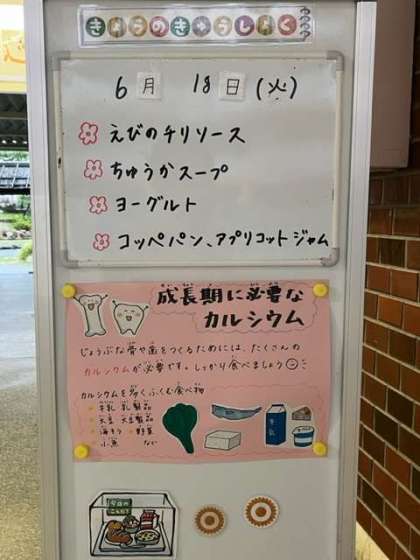 きょうのきゅうしょく
6月 18日(火)
えびのチリソース
ちゅうかスープ
ヨーグルト
コッペパン、アプリコットジャム
成長期に必要な
カルシウム
じょうぶな骨や歯をつくるためには、たくさんの
カルシウムが必要です。しっかり食べましょう
カルシウムを多くふくむ食べ物
牛乳 乳製品
大豆 大豆製品
海そう 野菜
小魚 など
牛乳